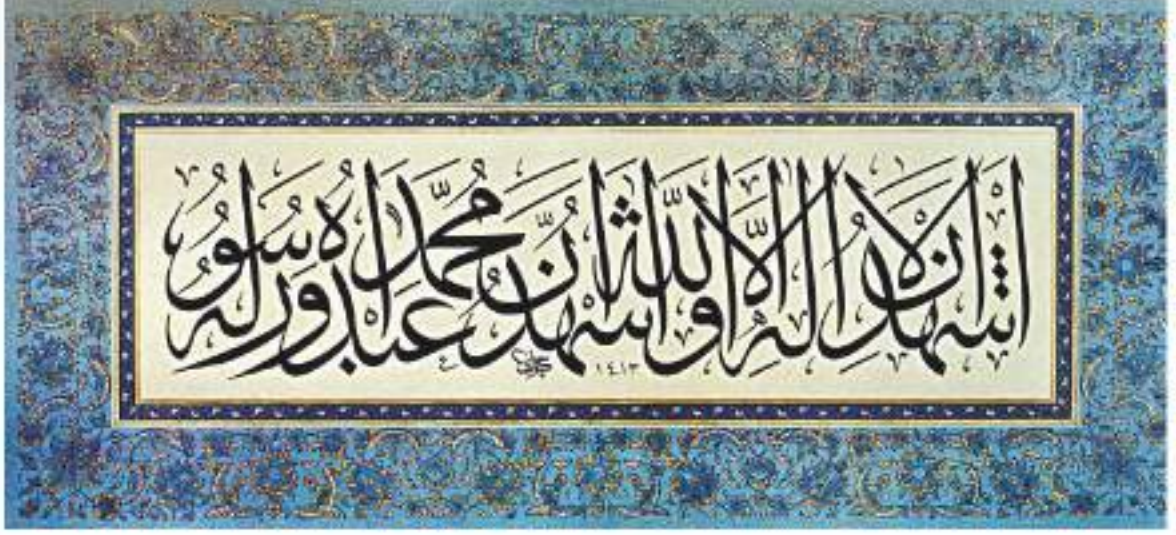 أشهد أن لا إله إلا الله وأشهد أن محمدا عبده ورسوله
١٤١٣